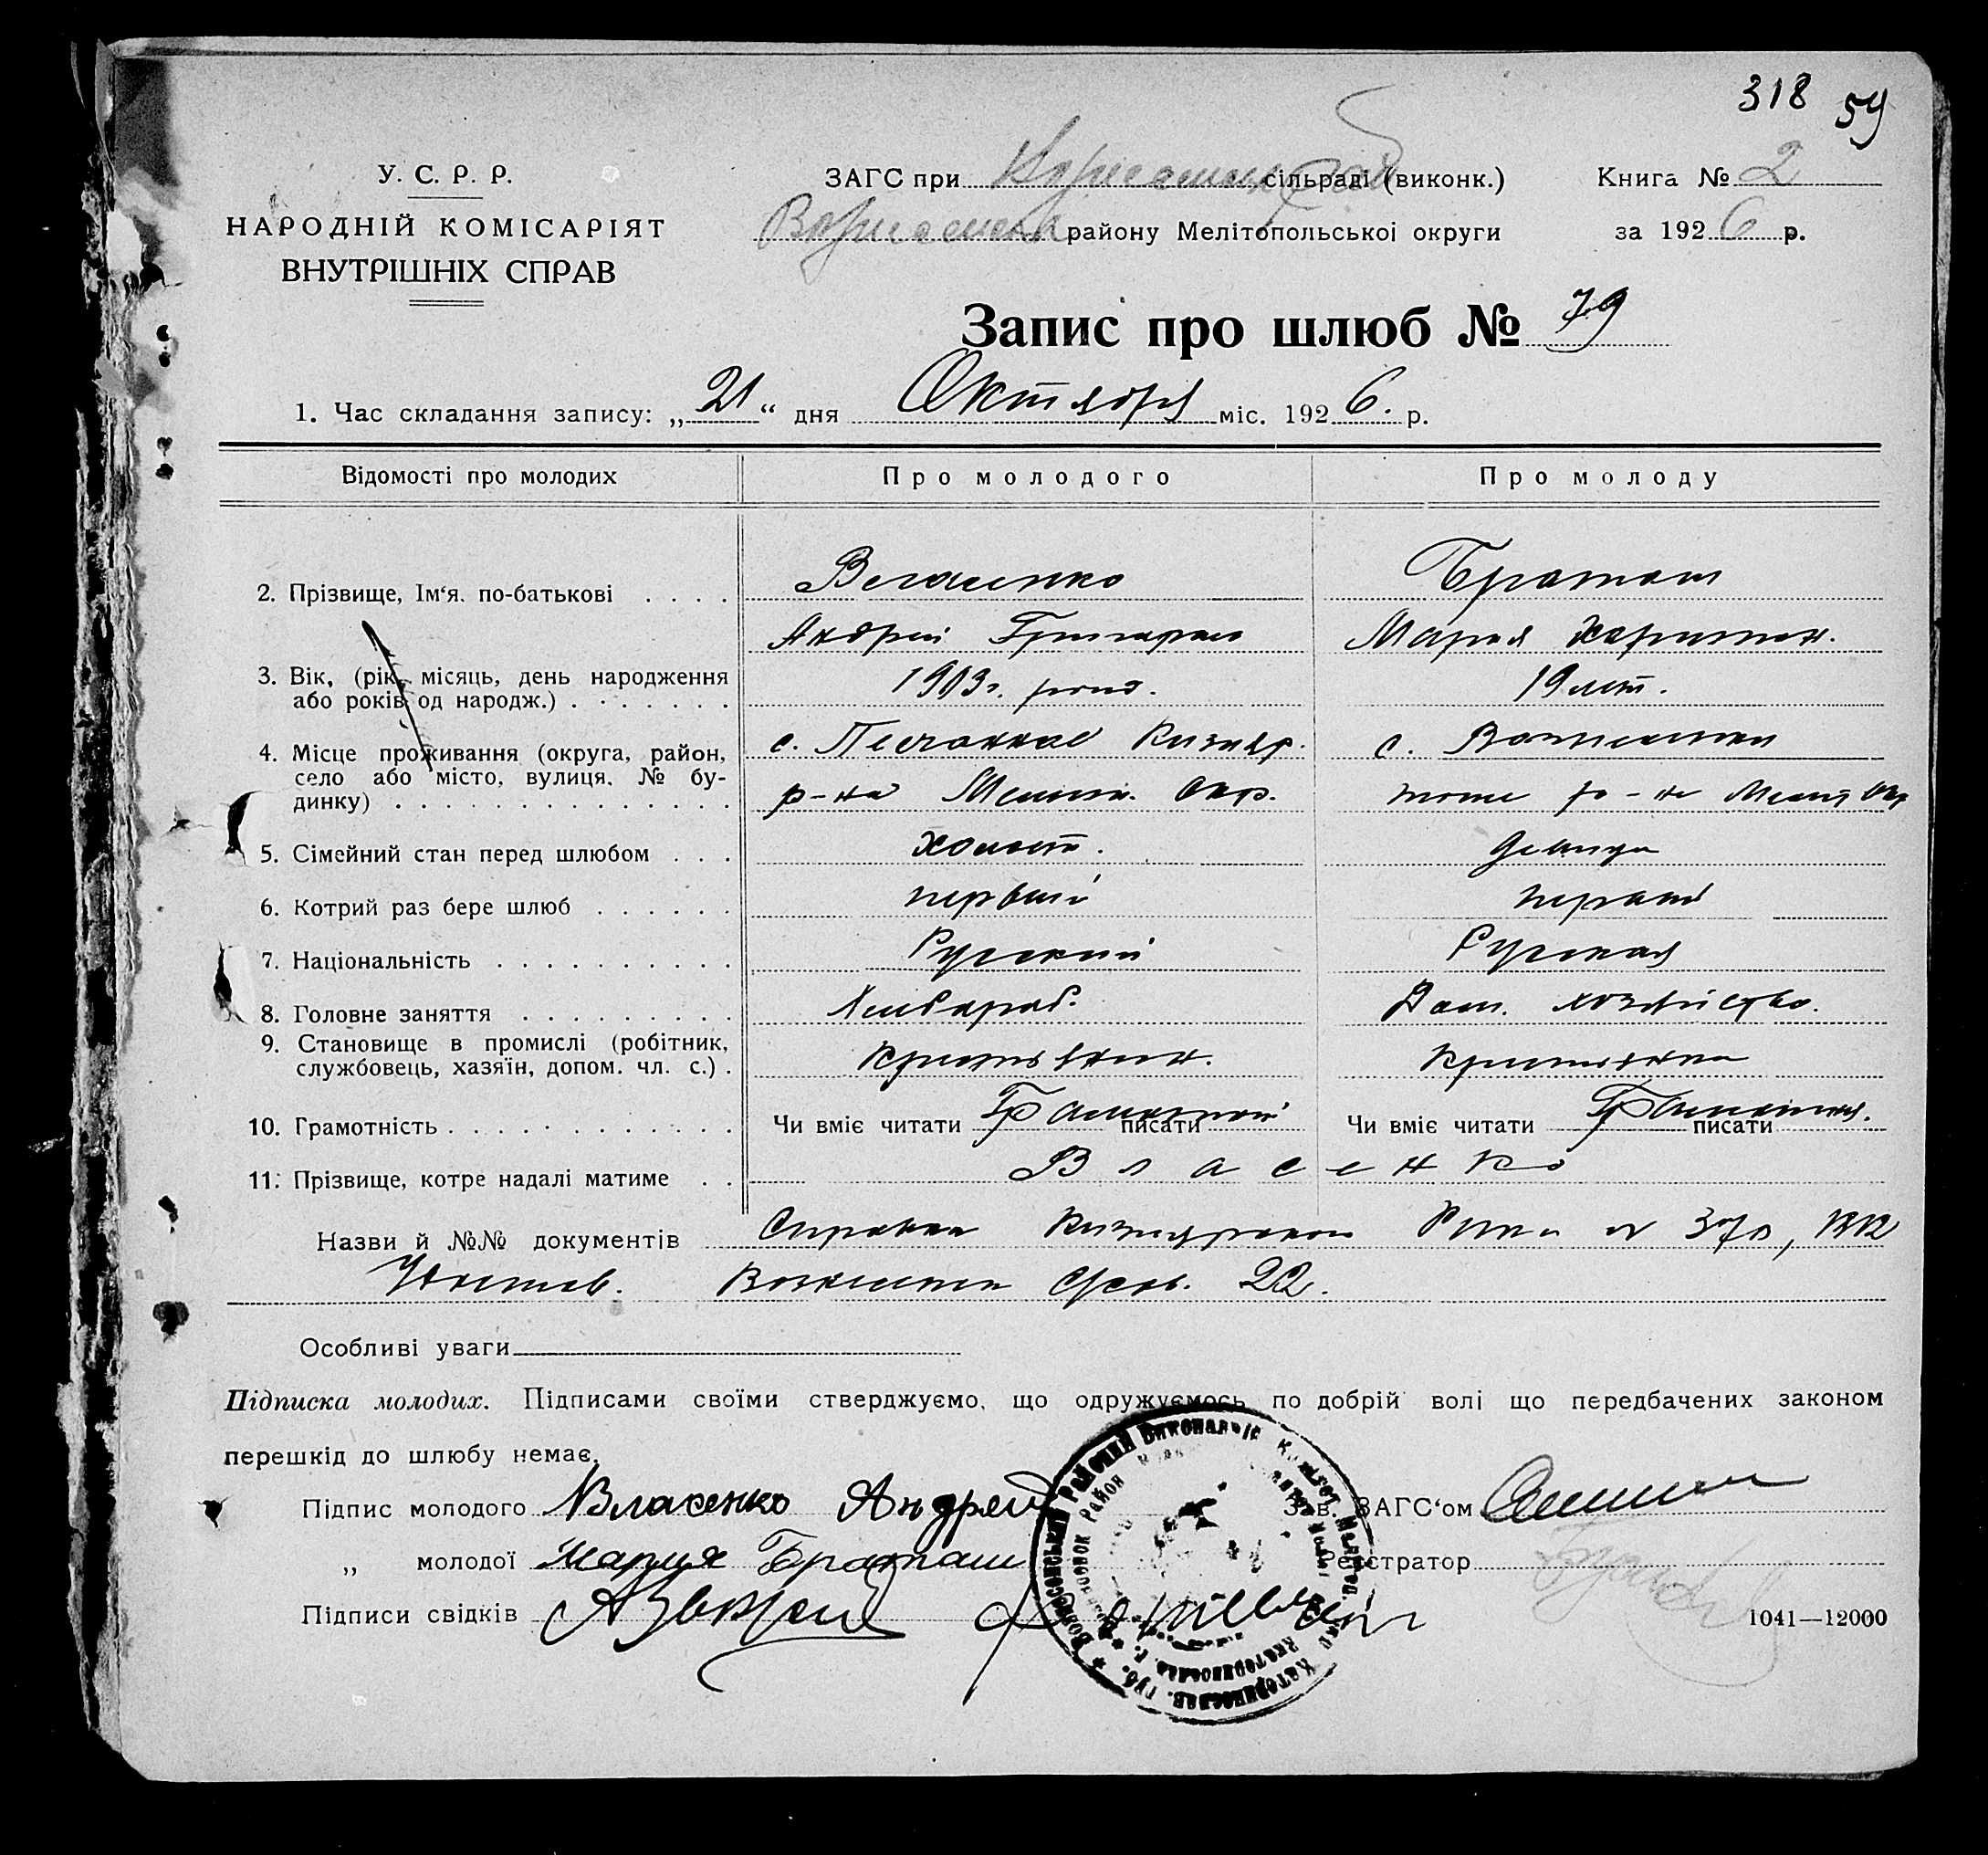 318 59
У. С. Р. Р.
НАРОДНІЙ КОМІСАРІЯТ
ВНУТРІШНІХ СПРАВ
ЗАГС при сільраді (виконк.)
району Мелітопольської округи
Книга № 2
за 1926 р.
Запис про шлюб № 79
1. Час складання запису: „21“ дня Октября міс. 1926. р.
Відомості про молодих Про молодого Про молоду
2. Прізвище, Ім‘я. по-батькові . . . . Власенко Браташ
Андрей Григорьев Мария Харитон.
3. Вік, (рік, місяць, день народження
або років од народж.) . . . . . . . 1903 г. рожд. 19 лет.
4. Місце проживання (округа, район,
село або місто, вулиця, № бу-
динку) . . . . . . . . . . . . . .
с. Песчанное Кизияр. с. Вознесенка
р-на Мелит. Окр. тоже р-на Мелит Окр
5. Сімейний стан перед шлюбом . . . холост. девица
6. Котрий раз бере шлюб . . . . . . первый первый
7. Національність . . . . . . . . . . Русский Русская
8. Головне заняття . . . . . . . . . Хлебароб. Дом. хозяйство.
9. Становище в промислі (робітник,
службовець, хазяїн, допом. чл. с.) . Крестьянин. Крестьянка
10. Грамотність . . . . . . . . . . . . Чи вміє читати Грамотный писати Чи вміє читати Грамотная. писати
11. Прізвище, котре надалі матиме . . Власенко
Назви й №№ документів Справка Кизиярской № 370,
Вознесенск 22.
Особливі уваги
Підписка молодих. Підписами своїми стверджуємо, що одружуємось по добрій волі що передбачених законом
перешкід до шлюбу немає.
Підпис молодого Власенко Андрей Зав. ЗАГС‘ом
„ молодої Мария Браташ Реєстратор
Підписи свідків
1041—12000